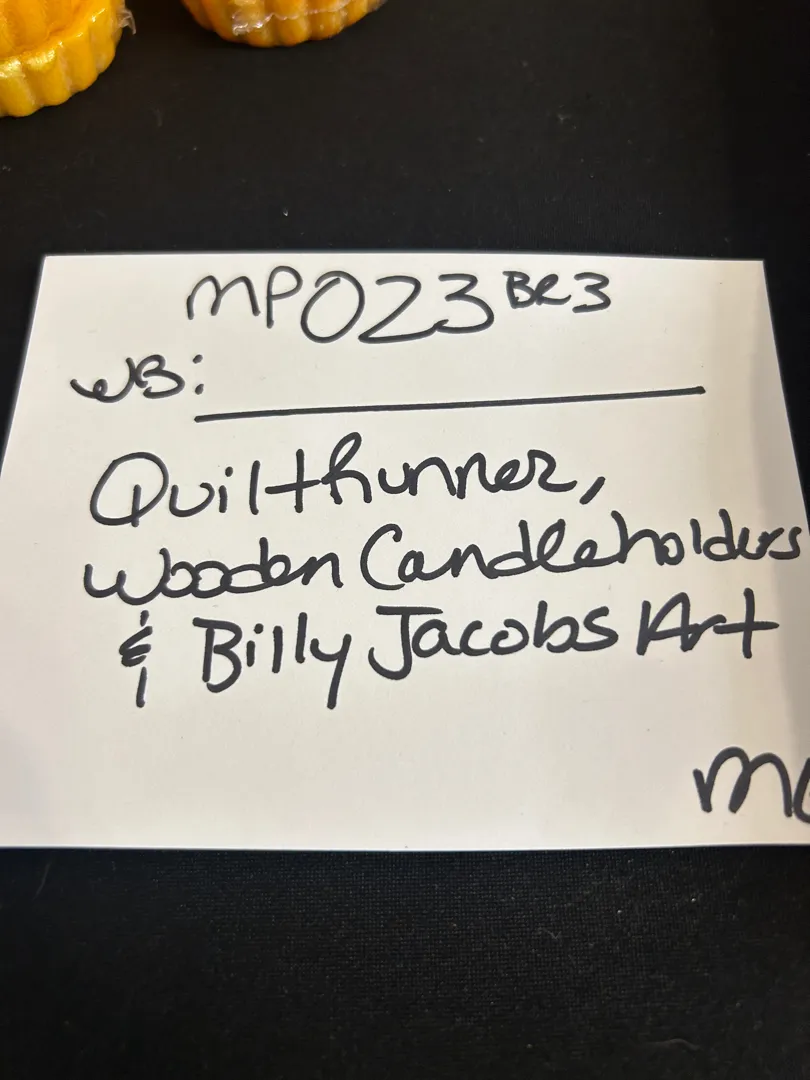 MP023 BR3
WB:
Quilt Runner,
Wooden Candleholders
& Billy Jacobs Art